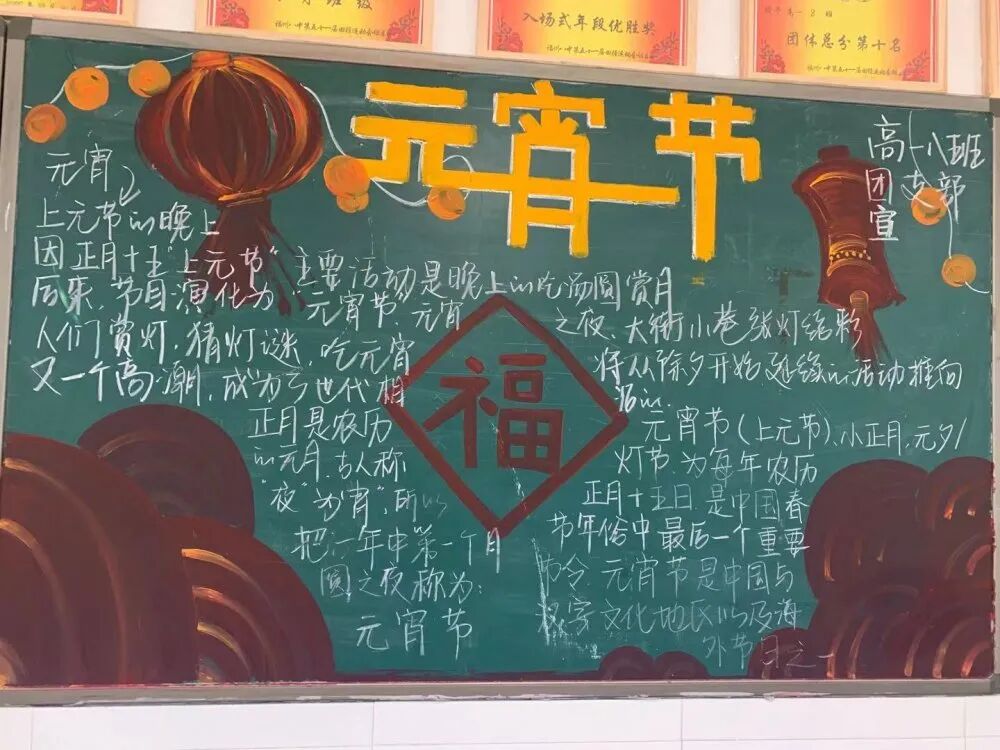 班级
入场式年段优胜奖
福州八中第五十一届田径运动会组委会
团体总分第十名
元宵节
高一八班
团支部
宣
元宵
上元节的晚上
因正月十五"上元节"主要活动是晚上的吃汤圆赏月
后来,节日演化为"元宵节"元宵
之夜、大街小巷张灯结彩
人们赏灯,猜灯谜,吃元宵
将从除夕开始延续的活动推向
又一个高潮,成为了世代相
沿的.
福
正月是农历
的元月,古人称
"夜"为"宵",所以
把一年中第一个月
圆之夜称为:
元宵节
元宵节(上元节)、小正月、元夕/
灯节、为每年农历
正月十五日、是中国春
节年俗中最后一个重要
节令、元宵节是中国与
文化地区以及海
外节日之一